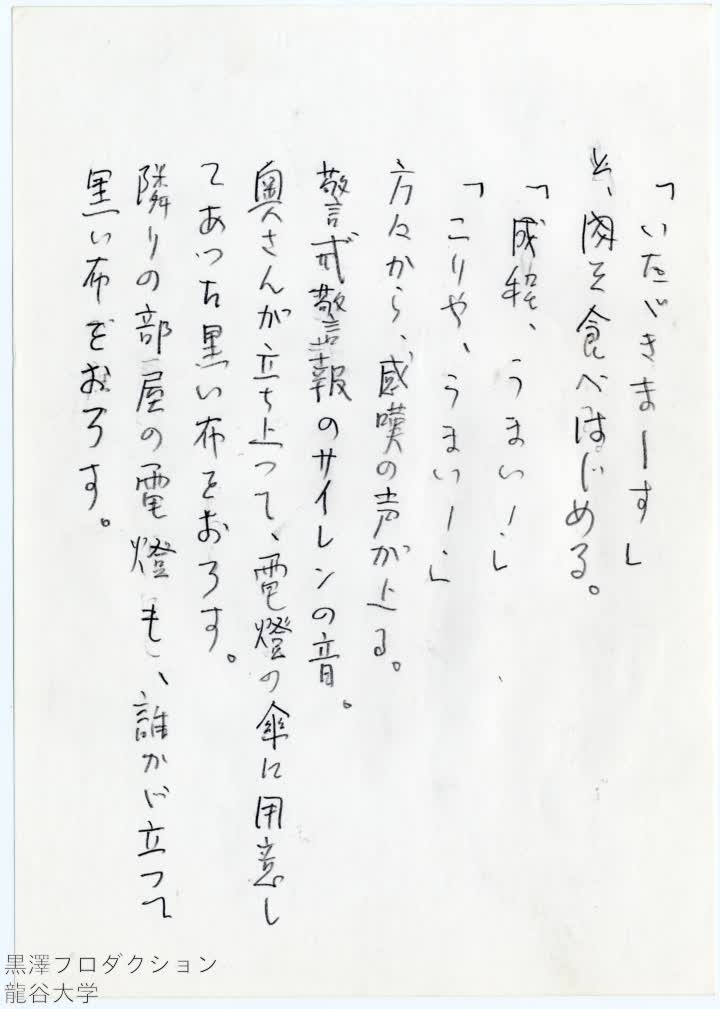 「いたゞきまーす」
と、肉を食べはじめる。
「成程、うまい！」
「こりや、うまい！」
方々から、感嘆の声が上る。
警戒警報のサイレンの音。
奥さんが立ち上つて、電燈の傘に用意し
てあつた黒い布をおろす。
隣りの部屋の電燈も、誰かゞ立つて
黒い布をおろす。
黒澤プロダクション
龍谷大学